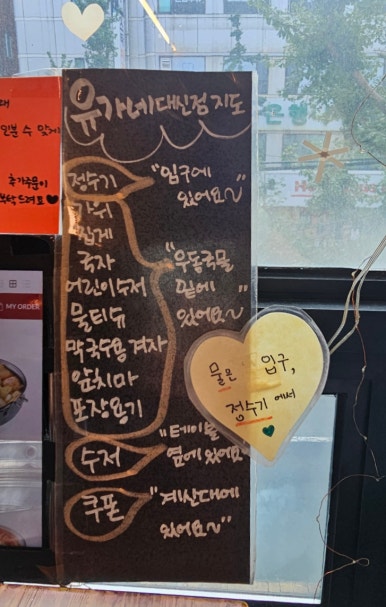 유가네 대신점 지도
정수기
"입구에
있어요~"
가위
집게
국자
어린이수저
물티슈
막국수용 겨자
앞치마
포장용기
"우동국물
밑에
있어요~"
수저
"테이블
옆에 있어요
쿠폰
"계산대에
있어요~"
물은 입구,
정수기에서
인분 수 맞게
추가주문이
MY ORDER